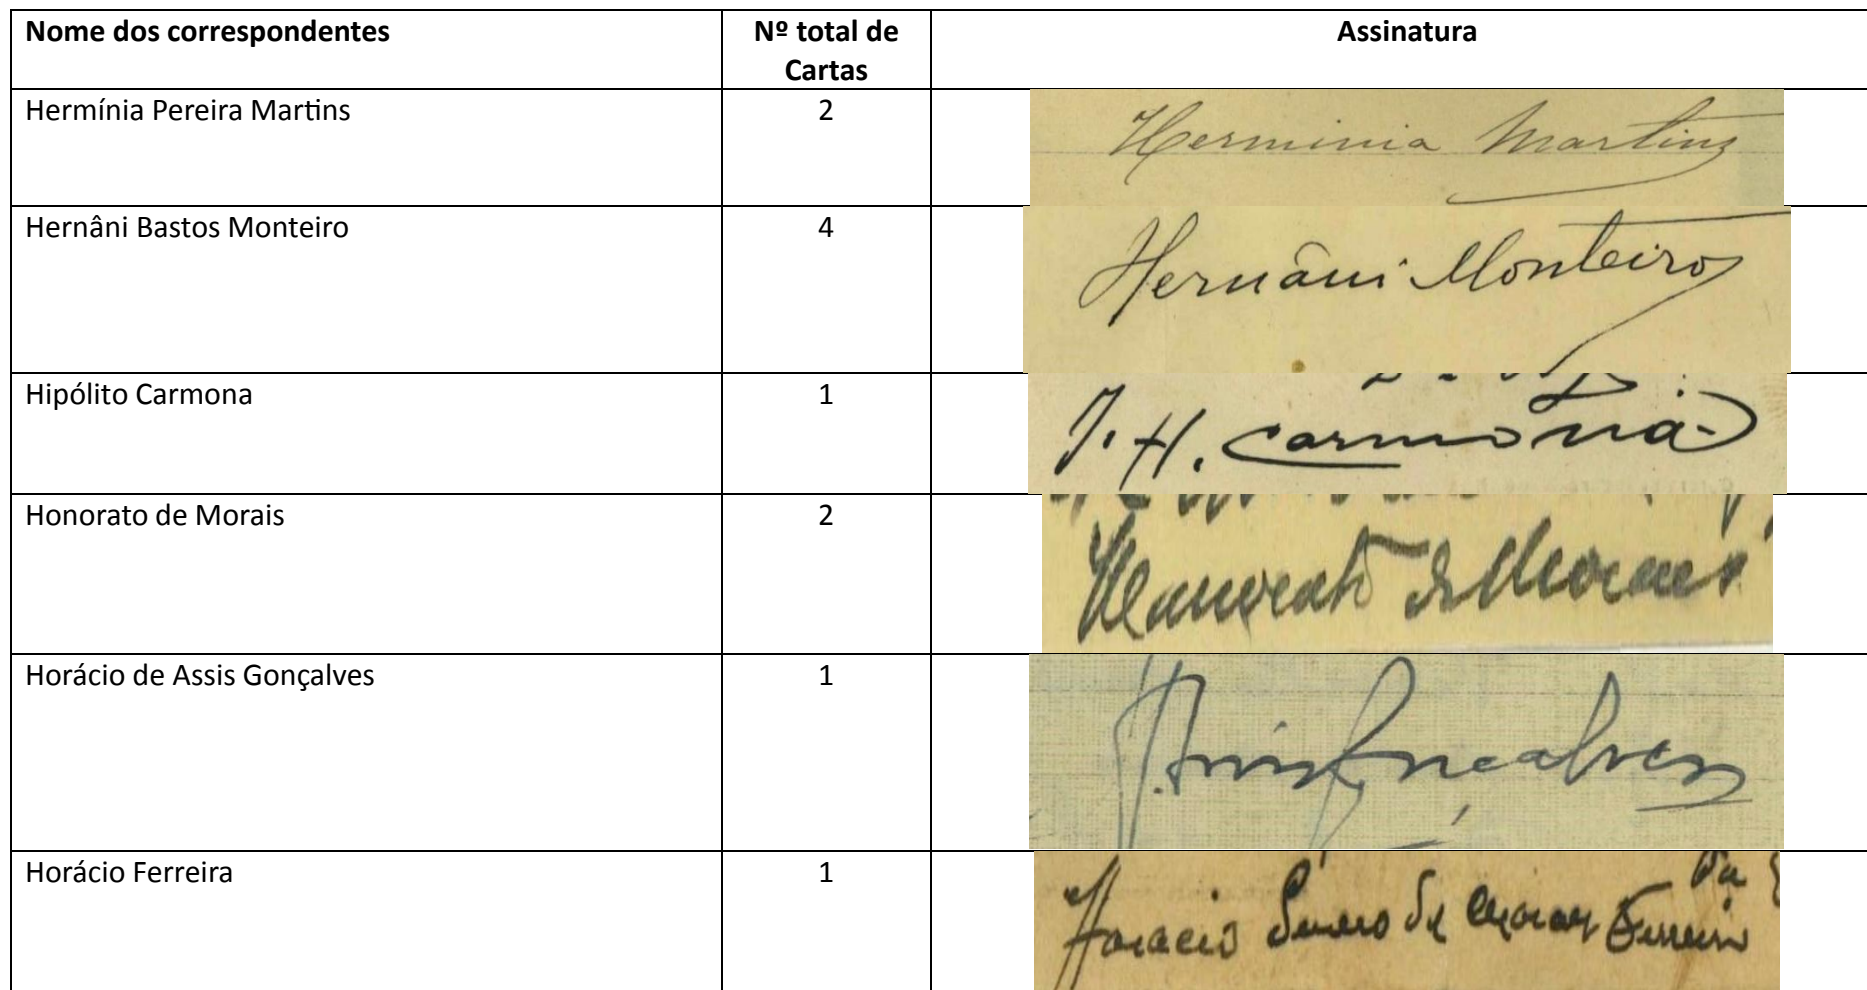 Nome dos correspondentes
Nº total de
Cartas
Assinatura
Hermínia Pereira Martins
2
Herminia Martins
Hernâni Bastos Monteiro
4
Hernâni Monteiro
Hipólito Carmona
1
J. H. Carmona
Honorato de Morais
2
Honorato de Moraes
Horácio de Assis Gonçalves
1
Assis Gonçalves
Horácio Ferreira
1
Horacio de Moraes Ferreira